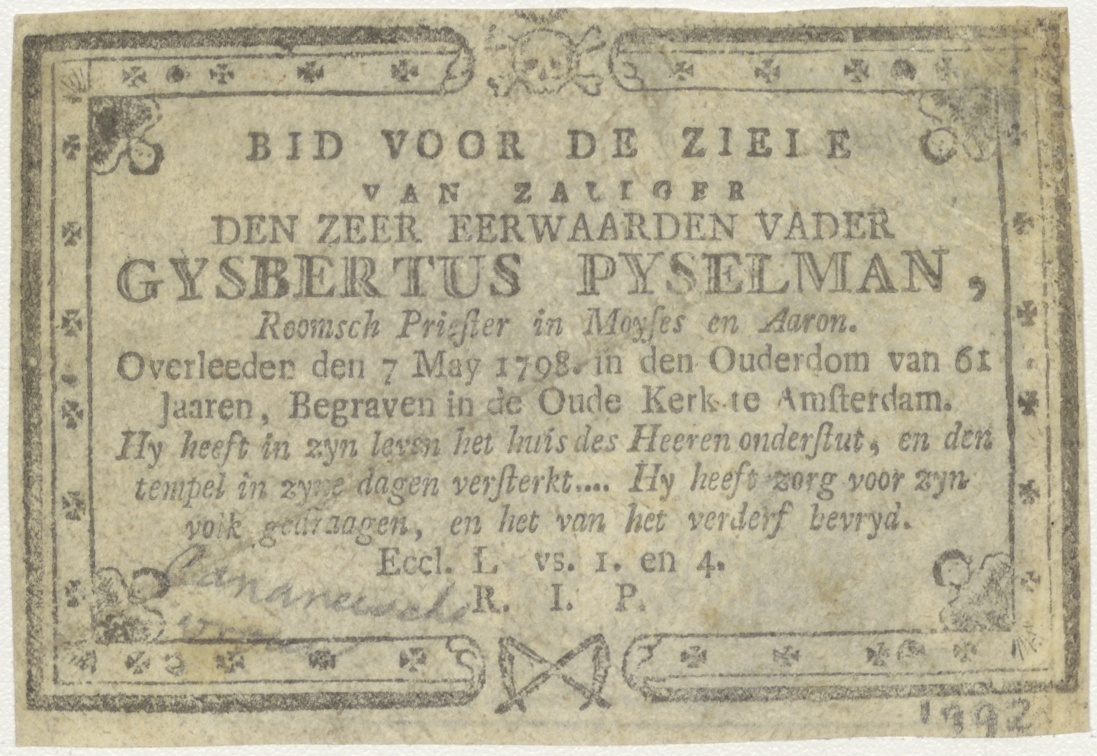 BID VOOR DE ZIELE
VAN ZALIGER
DEN ZEER EERWAARDEN VADER
GYSBERTUS PYSELMAN,
Roomsch Prieſter in Moyſes en Aaron.
Overleeden den 7 May 1798. in den Ouderdom van 61
Jaaren, Begraven in de Oude Kerk te Amſterdam.
Hy heeft in zyn leven het huis des Heeren onderſtut, en den
tempel in zyne dagen verſterkt.... Hy heeft zorg voor zyn
volk gedraagen, en het van het verderf bevryd.
Eccl. L vs. 1. en 4.
R. I. P.